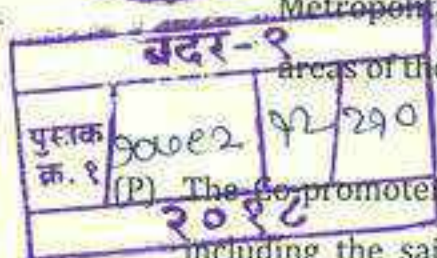 Metropolit
बदर-९
areas of the
पुस्तक
क्र. १
१२ २१०
(P) The Co-promoter
२०१८
including the sai